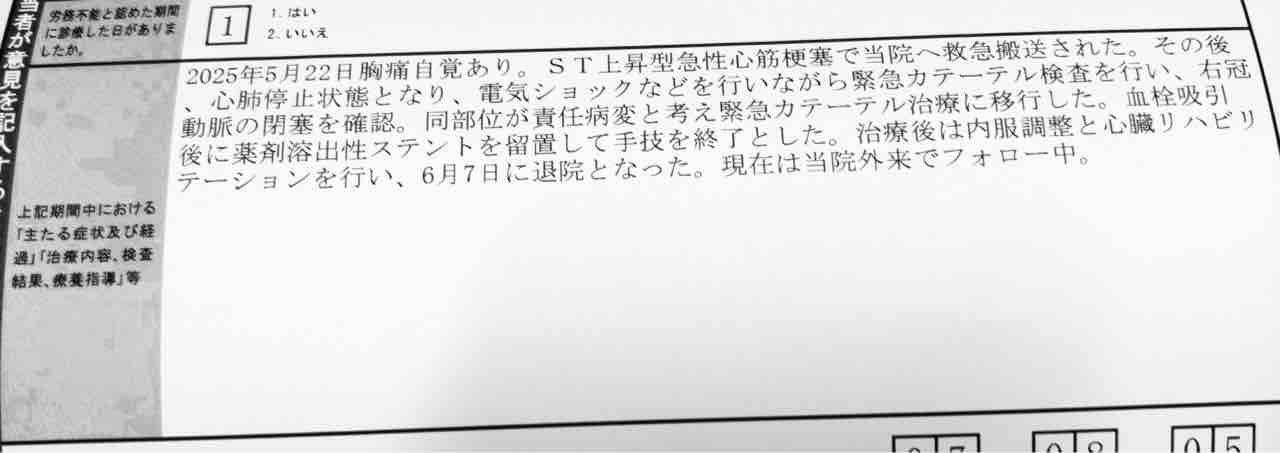 当者が意見を記入する
労務不能と認めた期間
に診療した日がありま
したか。
1
1. はい
2. いいえ
上記期間中における
「主たる症状及び経
過」「治療内容、検査
結果、療養指導」等
2025年5月22日胸痛自覚あり。ＳＴ上昇型急性心筋梗塞で当院へ救急搬送された。その後
、心肺停止状態となり、電気ショックなどを行いながら緊急カテーテル検査を行い、右冠
動脈の閉塞を確認。同部位が責任病変と考え緊急カテーテル治療に移行した。血栓吸引
後に薬剤溶出性ステントを留置して手技を終了とした。治療後は内服調整と心臓リハビリ
テーションを行い、6月7日に退院となった。現在は当院外来でフォロー中。
07 08 05